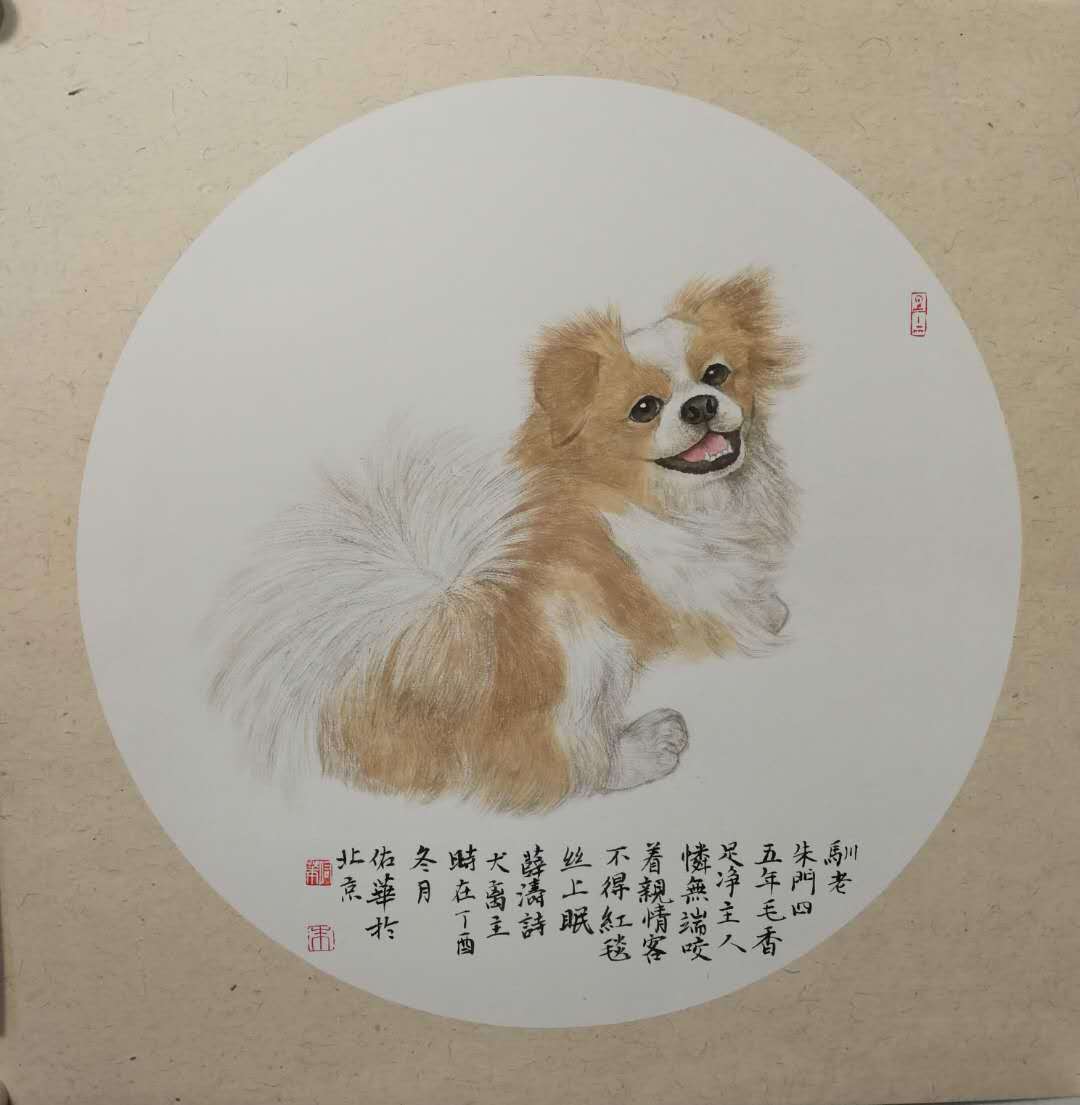 馴老
朱門四
五年毛香
足净主人
憐無端咬
着親情客
不得紅毯
丝上眠
薛濤詩
犬离主
時在丁酉
冬月
佑華於
北京